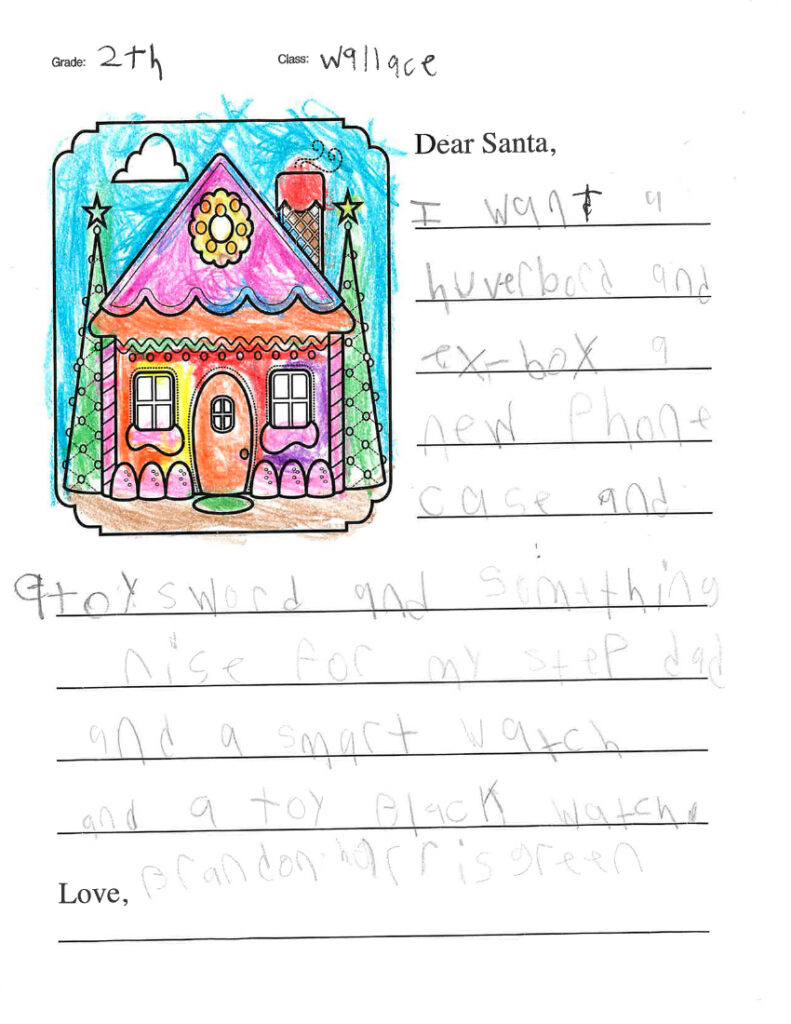 Grade: 2th Class: Wallace
Dear Santa,
I want a
huverbord and
ex-box a
new Phone
case and
a toy sword and something
nise for my step dad
and a smart watch
and a toy Black watch.
Brandon harris green
Love,